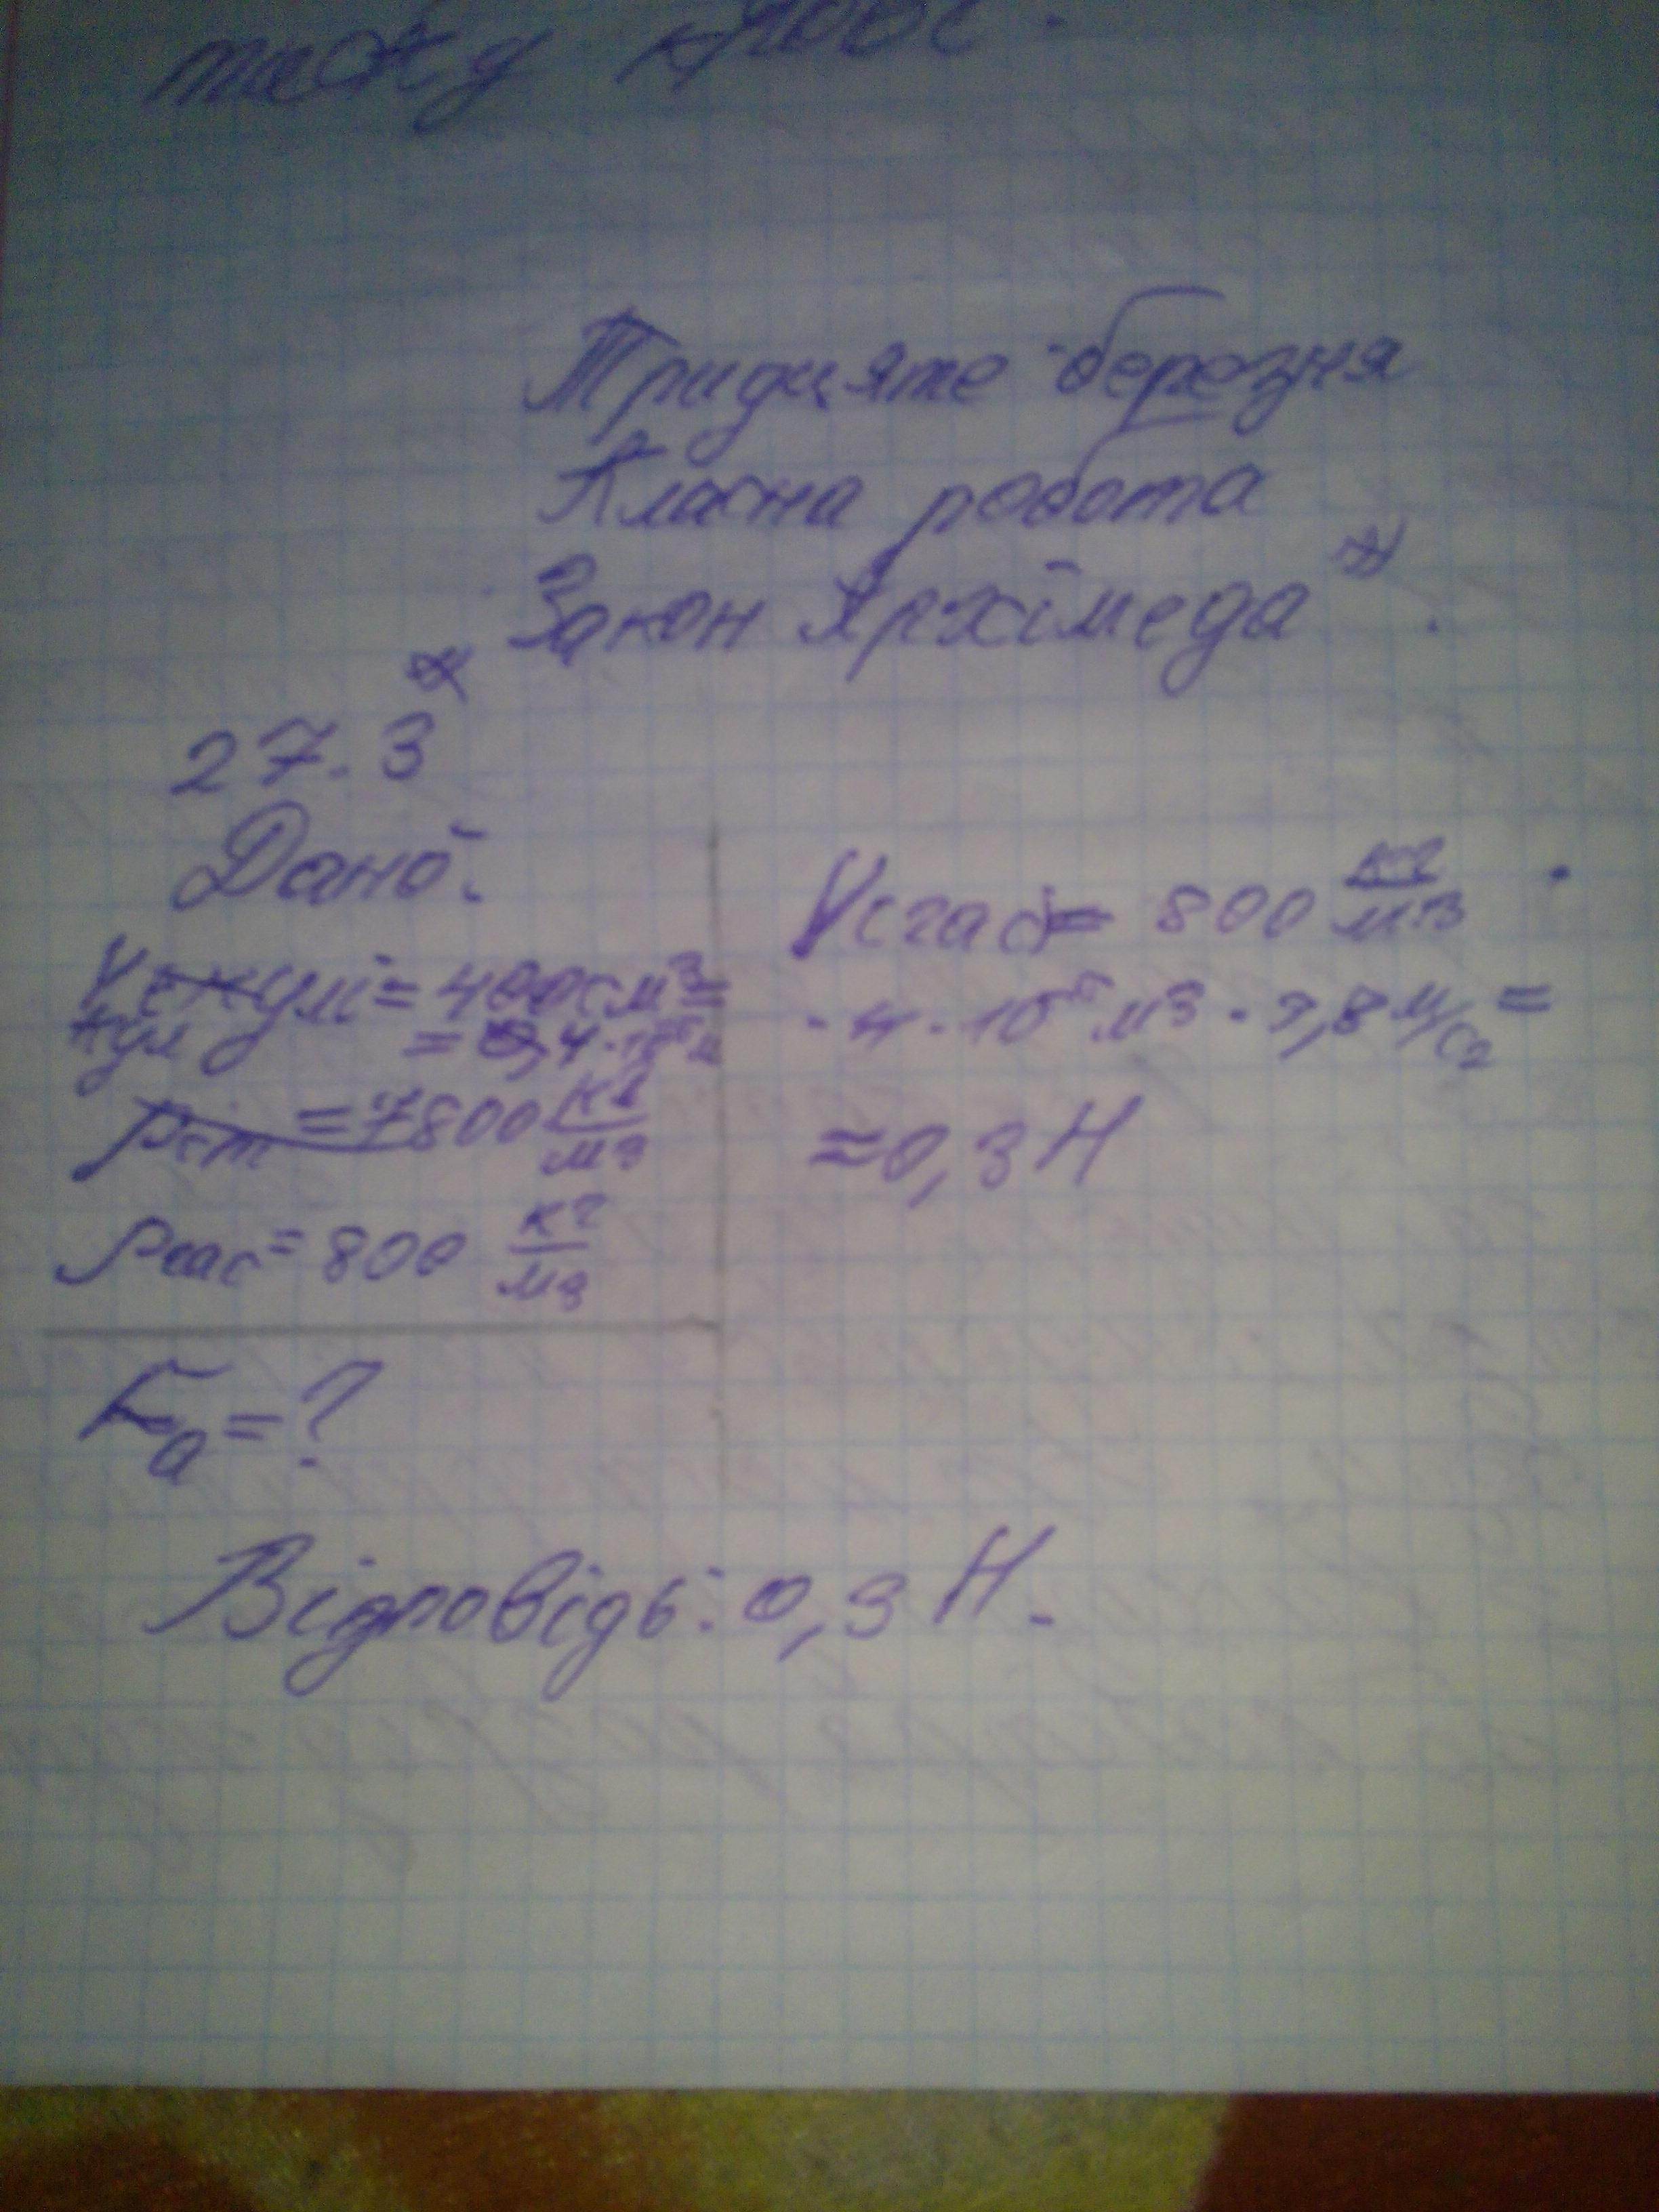 тиску
Тридцяте березня
Класна робота
"Закон Архімеда".
27.3
Дано:
Vкулі = 400 см³ =
кул = 4·10⁻⁵ м
ρст = 7800 кг/м3
ρгас = 800 кг/м3
Fa = ?
= 800 кг/м3 ·
· 4 · 10⁻⁵ м3 · 9,8 м/с2 =
≈ 0,3 Н
Відповідь: 0,3 Н.